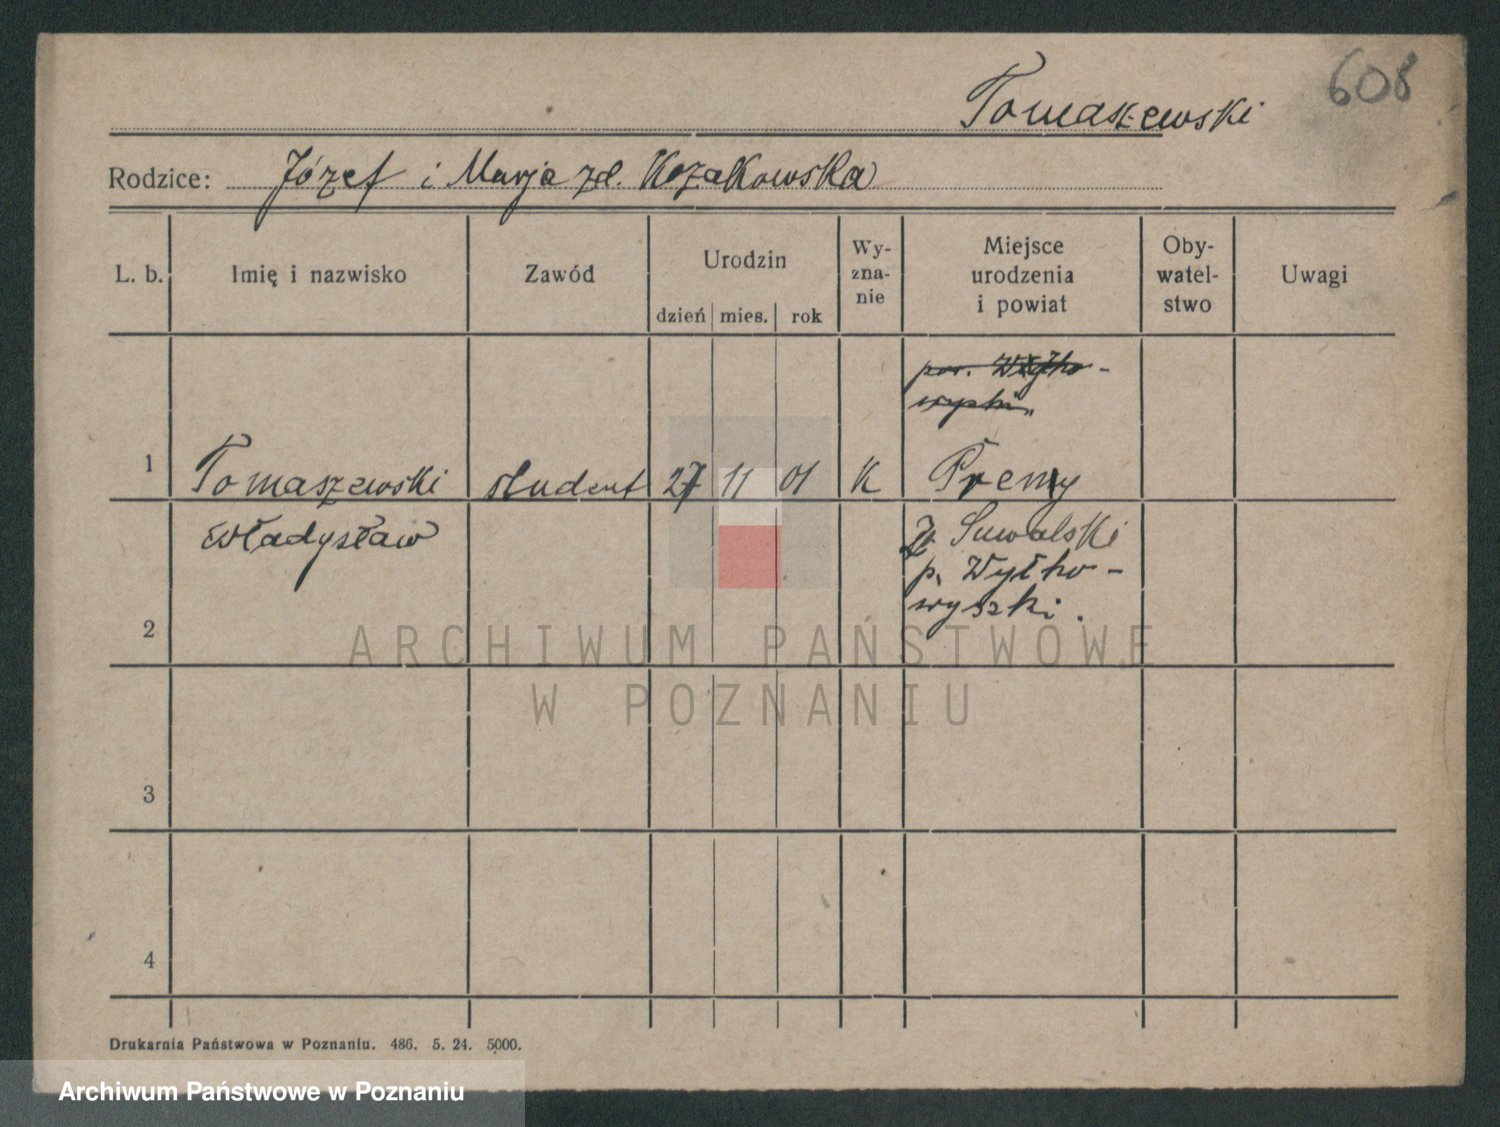 608
Tomaszewski
Rodzice: Józef i Marja zd. Kozakowska
L. b. Imię i nazwisko Zawód Urodzin dzień mies. rok Wy-zna-nie Miejsce urodzenia i powiat Oby-watel-stwo Uwagi
pow. Wyłko-
wyszki
1 Tomaszewski student 27 11 01 K Preny
Władysław
Z. Suwalski
p. Wyłko-
wyszki.
2
ARCHIWUM PAŃSTWOWE
W POZNANIU
3
4
Drukarnia Państwowa w Poznaniu. 486. 5. 24. 5000.
Archiwum Państwowe w Poznaniu